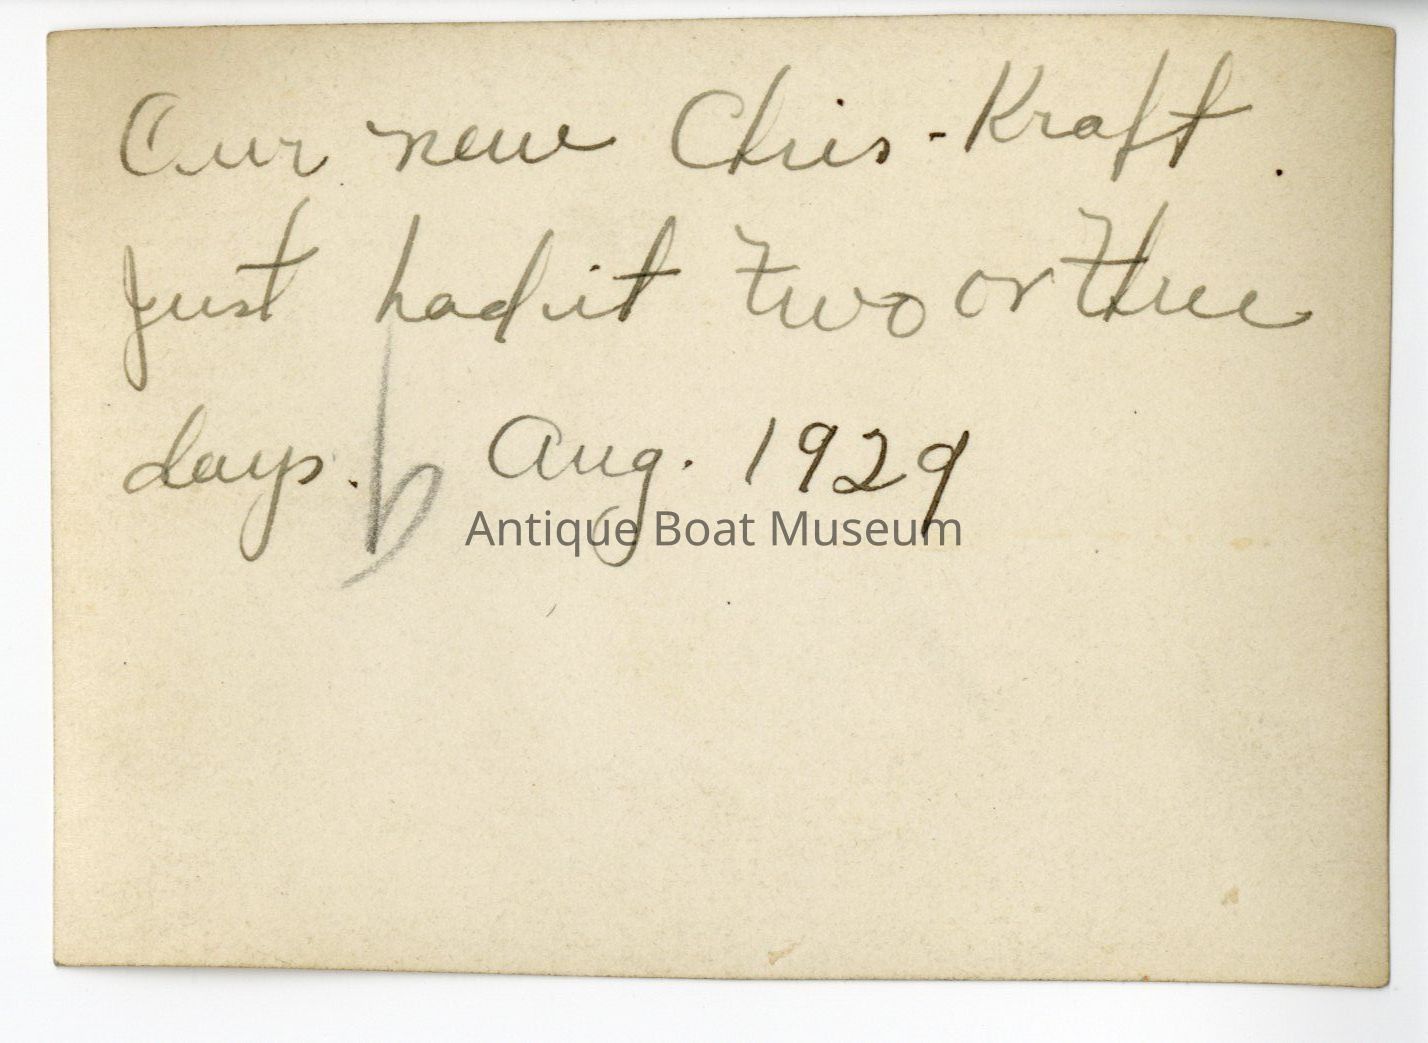 Our new Chris-Kraft.
Just had it two or three
days. Aug. 1929
Antique Boat Museum